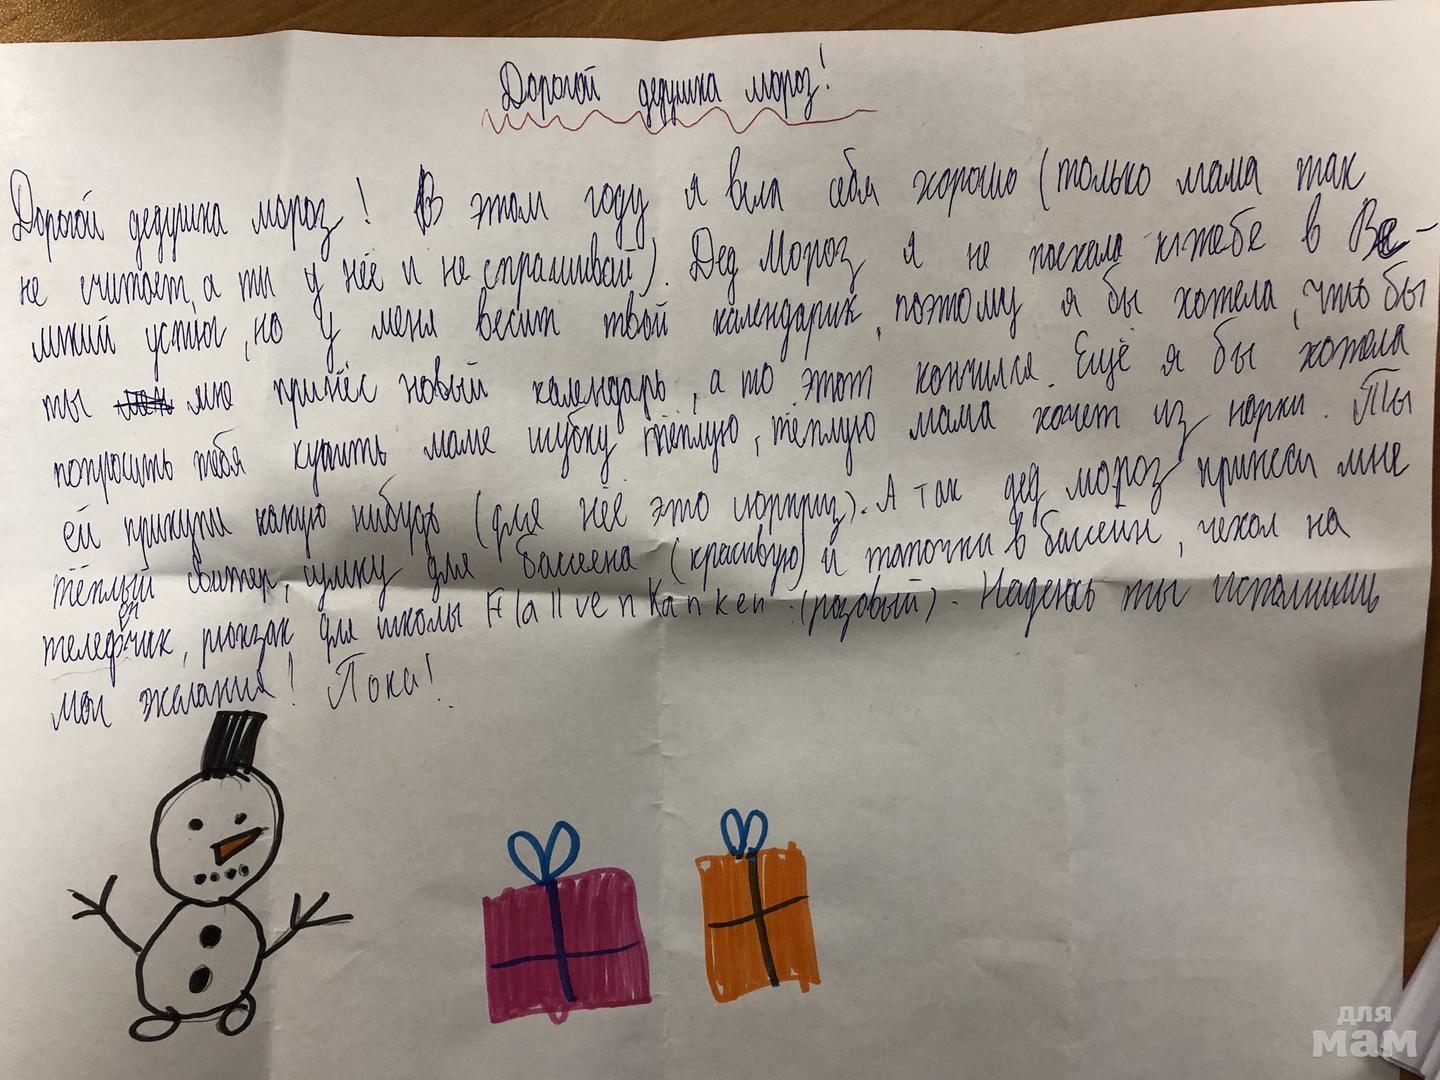 Дорогой дедушка мороз!
Дорогой дедушка мороз! В этом году я вела себя хорошо (только мама так
не считает, а ты у неё и не спрашивай). Дед Мороз я не поехала к тебе в Ве-
ликий устюг, но у меня весит твой календарик, поэтому я бы хотела, что бы
ты мне принёс новый календарь, а то этот кончился. Ещё я бы хотела
попросить тебя купить маме шубку тёплую, тёплую мама хочет из норки. Ты
ей прикупи какую нибудь (для неё это сюрприз). А так дед мороз принеси мне
тёплый свитер, сумку для бассеена (красивую) и тапочки в бассеин, чехол на
телефончик, рюкзак для школы Flallven Kanken (розовый). Надеюсь ты исполнишь
мои желания! Пока!
для
мам